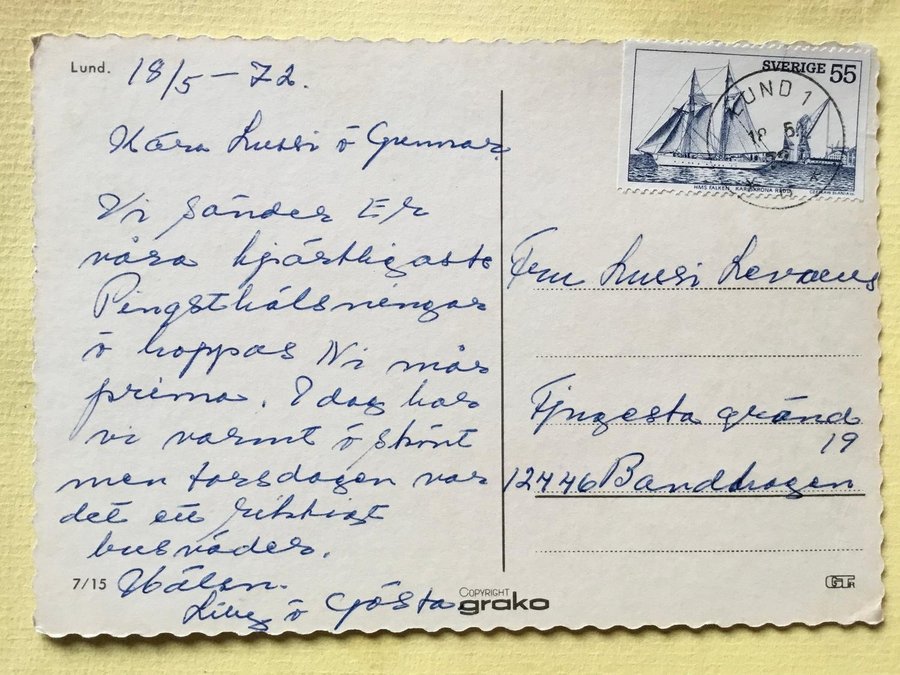 Lund. 18/5-72.
Kära Lussi ö Gunnar
Vi sänder Er
våra hjärtligaste
Pingsthälsningar
ö hoppas Ni mår
prima. I dag har
vi varmt ö skönt
men torsdagen var
det ett riktigt
busväder.
Hälsn.
ö Gösta
7/15
COPYRIGHT
grako
SVERIGE 55
LUND 1
18 5
HMS FALKEN KARLSKRONA REDD
Fru Lussi
gränd
19
12446 Bandhagen